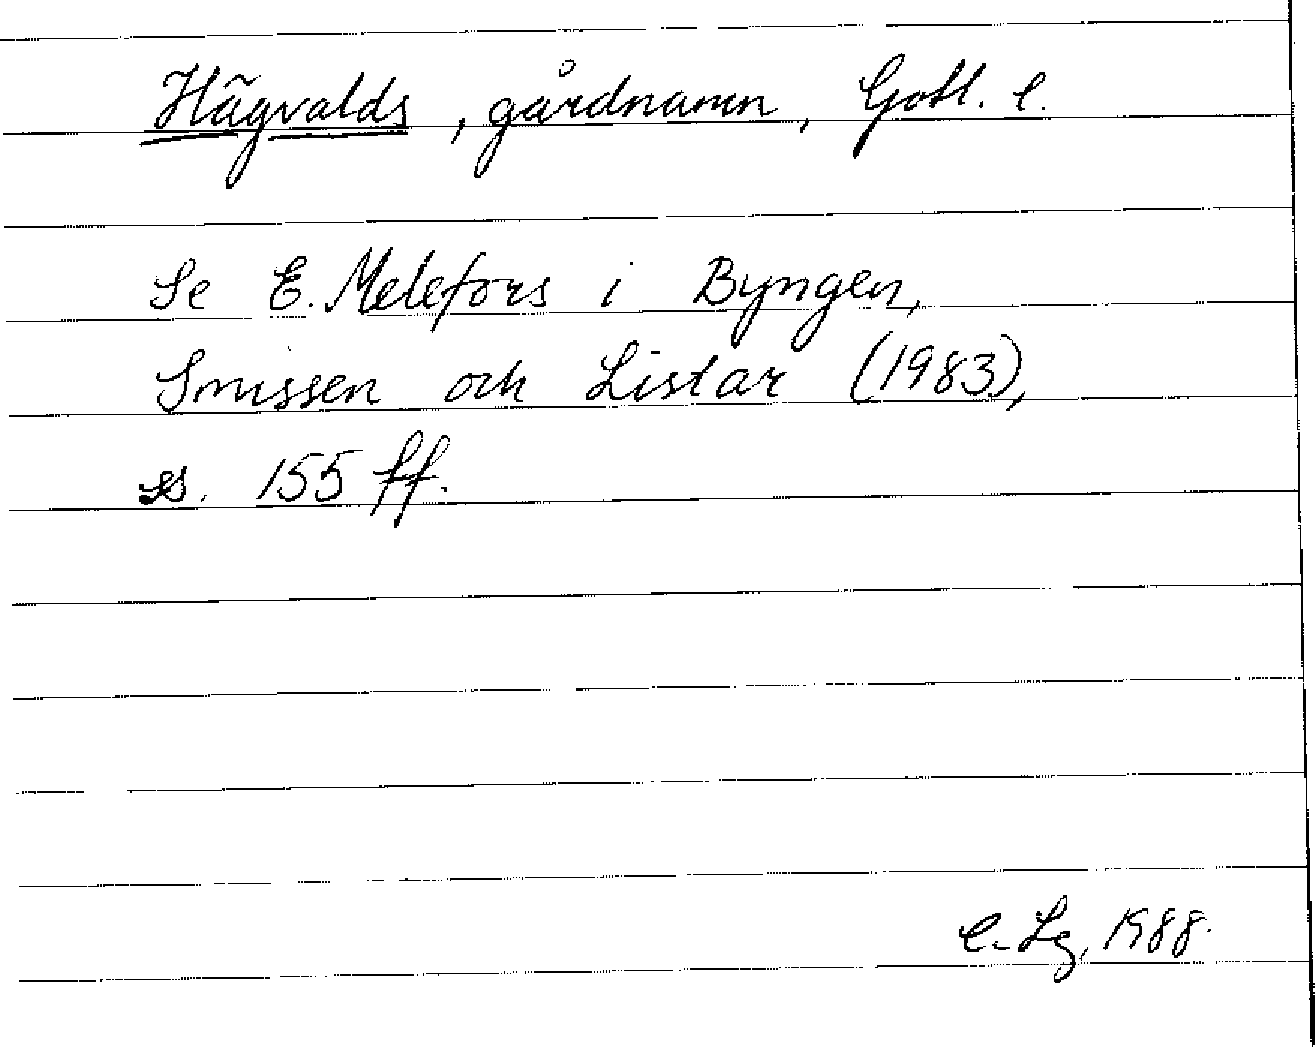 Hägvalds, gårdnamn, Gotl. l.
Se E. Melefors i Byngen,
Smissen och Listar (1983),
ss. 155 ff.
C. Lg, 1988.